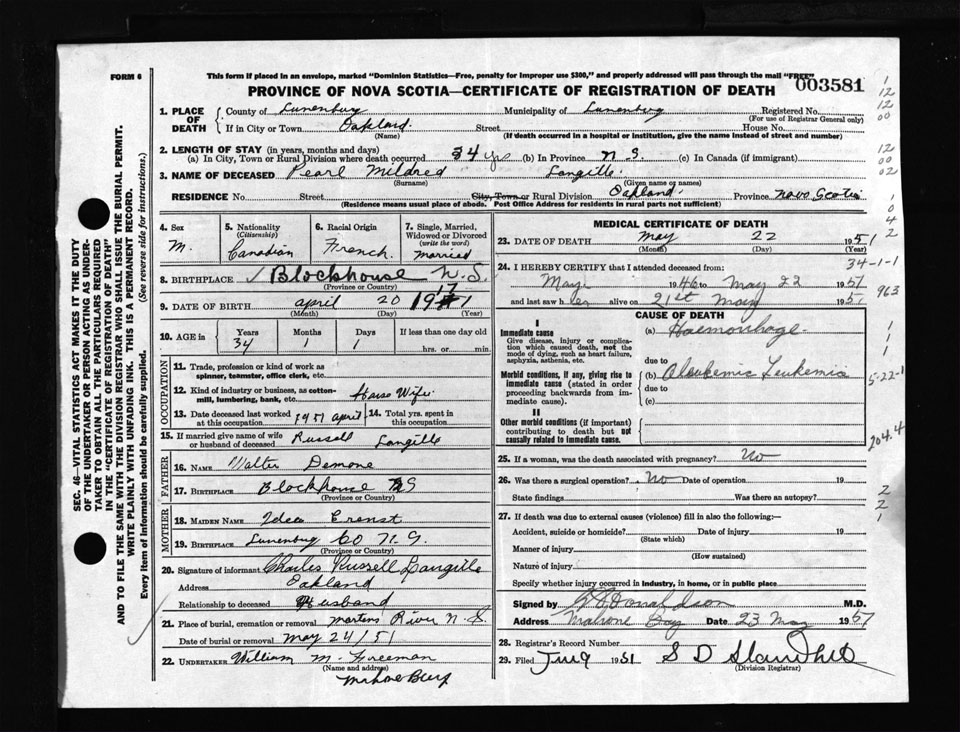 FORM 6
This form if placed in an envelope, marked "Dominion Statistics—Free, penalty for improper use $300," and properly addressed will pass through the mail "FREE"
003581
PROVINCE OF NOVA SCOTIA—CERTIFICATE OF REGISTRATION OF DEATH
1. PLACE OF DEATH
County of Lunenburg Municipality of Lunenburg Registered No.
(For use of Registrar General only)
If in City or Town Oakland Street House No.
(Name) (If death occurred in a hospital or institution, give the name instead of street and number)
2. LENGTH OF STAY (in years, months and days)
(a) In City, Town or Rural Division where death occurred 34 yrs (b) In Province N.S. (c) In Canada (if immigrant)
3. NAME OF DECEASED Pearl Mildred Langille
(Surname) (Given name or names)
RESIDENCE No. Street City, Town or Rural Division Oakland Province Nova Scotia
(Residence means usual place of abode. Post Office Address for residents in rural parts not sufficient)
4. Sex
M.
5. Nationality
(Citizenship)
Canadian
6. Racial Origin
French
7. Single, Married, Widowed or Divorced
(write the word)
married
8. BIRTHPLACE Blockhouse N.S.
(Province or Country)
9. DATE OF BIRTH april 20 1917
(Month) (Day) (Year)
10. AGE in
Years Months Days If less than one day old
34 1 1 hrs. or min.
OCCUPATION
11. Trade, profession or kind of work as spinner, teamster, office clerk, etc.
12. Kind of industry or business, as cotton-mill, lumbering, bank, etc. House Wife
13. Date deceased last worked at this occupation 1951 april 14. Total yrs. spent in this occupation
15. If married give name of wife or husband of deceased Russell Langille
FATHER
16. NAME Walter Demone
17. BIRTHPLACE Blockhouse NS
(Province or Country)
MOTHER
18. MAIDEN NAME Idea Ernst
19. BIRTHPLACE Lunenburg Co N.S.
(Province or Country)
20. Signature of informant Charles Russell Langille
Address Oakland
Relationship to deceased Husband
21. Place of burial, cremation or removal Martens River N.S.
Date of burial or removal May 24/51
22. UNDERTAKER William M. Freeman
(Name and address)
MEDICAL CERTIFICATE OF DEATH
23. DATE OF DEATH May 22 1951
(Month) (Day) (Year)
24. I HEREBY CERTIFY that I attended deceased from:
May 1946 to May 22 1951
and last saw her alive on 21st May 1951
CAUSE OF DEATH
I
Immediate cause
Give disease, injury or complication which caused death, not the mode of dying, such as heart failure, asphyxia, asthenia, etc.
(a) Haemorrhage
due to
Morbid conditions, if any, giving rise to immediate cause (stated in order proceeding backwards from immediate cause).
(b) Aleukemic Leukemia
due to
(c)
II
Other morbid conditions (if important) contributing to death but not causally related to immediate cause.
25. If a woman, was the death associated with pregnancy? No
26. Was there a surgical operation? No Date of operation 19
State findings Was there an autopsy?
27. If death was due to external causes (violence) fill in also the following:—
Accident, suicide or homicide? Date of injury 19
(State which)
Manner of injury
(How sustained)
Nature of injury
Specify whether injury occurred in industry, in home, or in public place
Signed by Donaldson M.D.
Address Mahone Bay Date 23 May 1951
28. Registrar's Record Number
29. Filed June 9 1951 S D
(Division Registrar)
SEC. 46—VITAL STATISTICS ACT MAKES IT THE DUTY
OF THE UNDERTAKER OR PERSON ACTING AS UNDERTAKER TO OBTAIN ALL THE PARTICULARS REQUIRED
IN THE "CERTIFICATE OF REGISTRATION OF DEATH"
AND TO FILE THE SAME WITH THE DIVISION REGISTRAR WHO SHALL ISSUE THE BURIAL PERMIT.
WRITE PLAINLY WITH UNFADING INK. THIS IS A PERMANENT RECORD.
Every item of information should be carefully supplied. (See reverse side for instructions.)
1
12
12
00
12
00
02
1
0
4
2
34-1-1
963
1
1
1
5-22-1
204.4
2
2
1